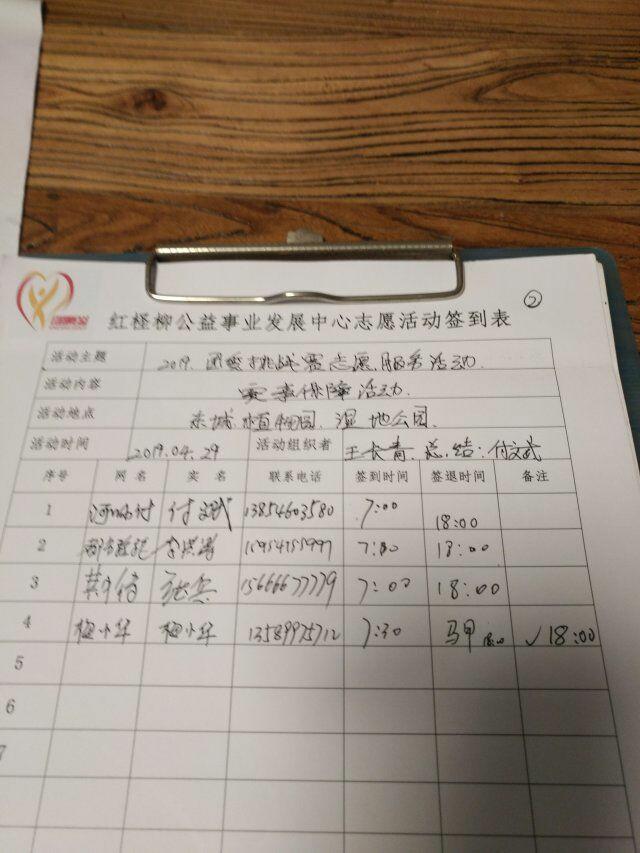 ②
红柽柳公益事业发展中心志愿活动签到表
活动主题 2019. 团委挑战赛志愿服务活动.
活动内容 赛事保障活动.
活动地点 东城.植物园.湿地公园.
活动时间 2019.04.29 活动组织者 王长青.总结:付文武
序号 网名 实名 联系电话 签到时间 签退时间 备注
1 付文武 13854603580 7:00 18:00
2 7:00 18:00
3 15666677779 7:00 18:00
4 梅小华 梅小华 13589975712 7:30 马甲 18:00 √18:00
5
6
7